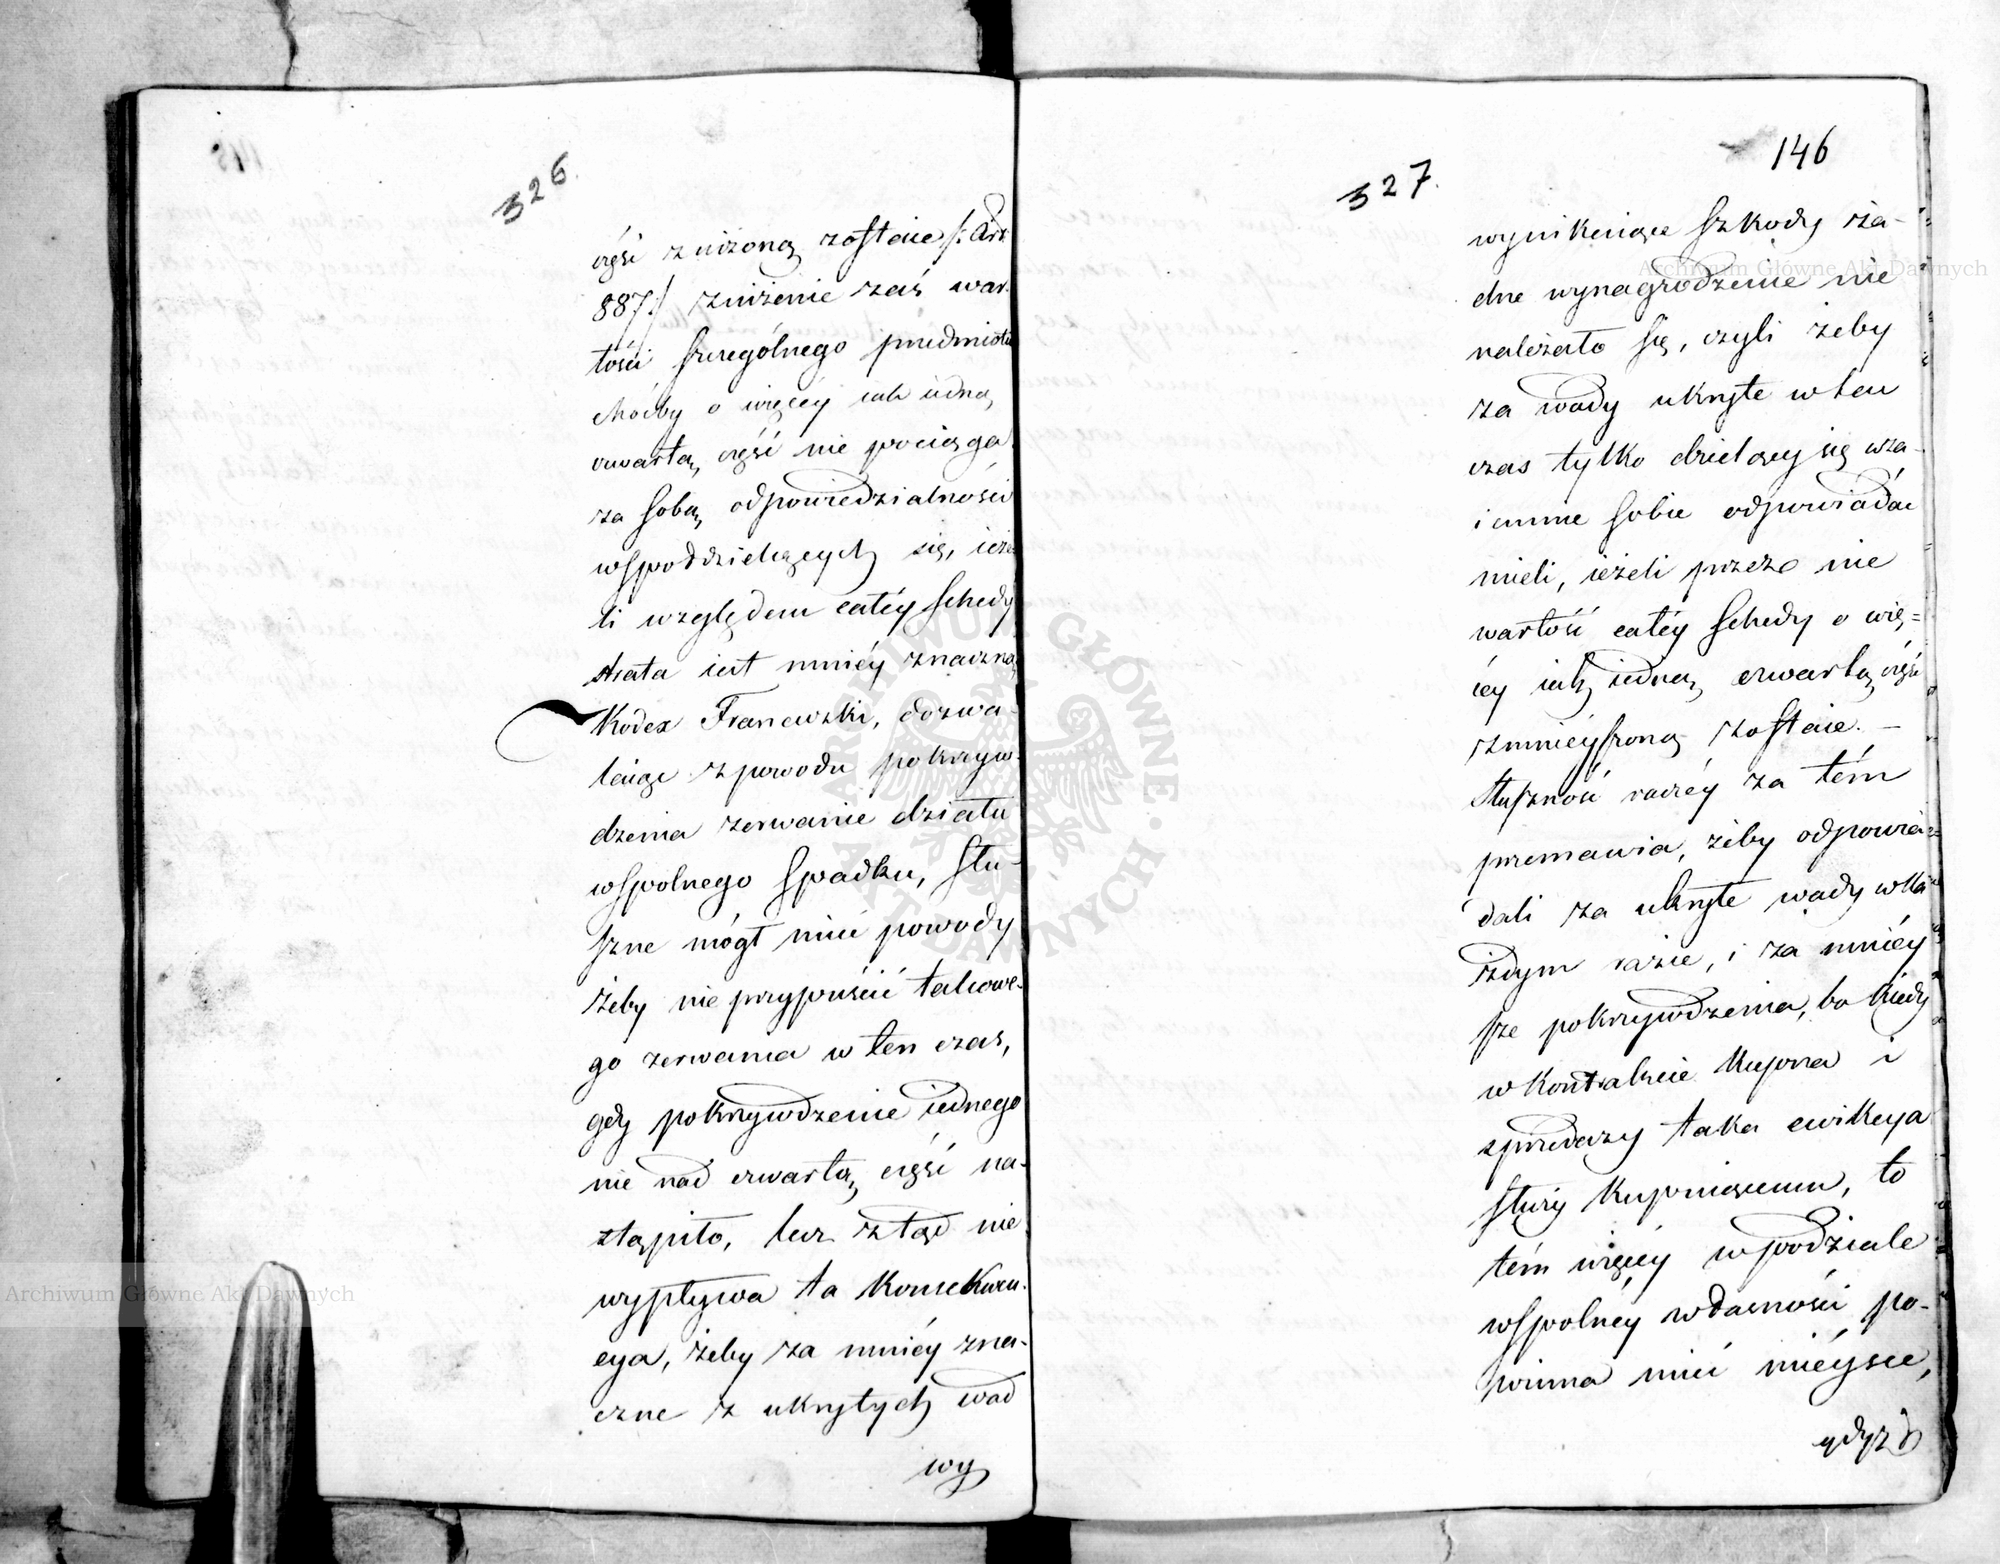 326.
częśi zniżoną zostaie /: Art:
887:/ zniżenie zaś war-
tości szczególnego przedmiotu
choćby o więcéy iak iedną
czwartą część nie pociąga
za sobą odpowiedzialności
wspołdzielących się, ieże
li względem całéy schedy
strata iest mniéy znaczną
Kodex Francuzki, dozwa-
laiąc z powodu pokrzyw-
dzenia zerwanie działu
wspolnego spadku, słu-
szne mógł mieć powody
żeby nie przypuścić takowe-
go zerwania w ten czas,
gdy pokrzywdzenie iednego
nie nad czwartą część na-
stąpiło, lecz ztąd nie
wypływa ta konsekwen-
cya, żeby za mniéy zna-
czne z ukrytych wad
wy
146
327.
wynikaiące szkody ża-
dne wynagrodzenie nie
należało się, czyli żeby
za wady ukryte w ten
czas tylko dzielący się wza-
iemnie sobie odpowiadać
mieli, ieżeli przeze nie
wartość całéy schedy o wię-
céy iak iedną czwartą część
zmnieyszoną zostaie. —
Słuszność raczéy za tém
przemawia, żeby odpowia-
dali za ukryte wady w ka-
żdym razie, i za mniéy
sze pokrzywdzenia, bo kiedy
w kontrakcie kupna i
sprzedazy taka ewikcya
służy kupuiącemu, to
tém więcéy w podziale
wspolnéy własności po-
winna mieć miéysce,
gdyż
Archiwum Główne Akt Dawnych
Archiwum Główne Akt Dawnych
ARCHIWUM GŁÓWNE AKT DAWNYCH